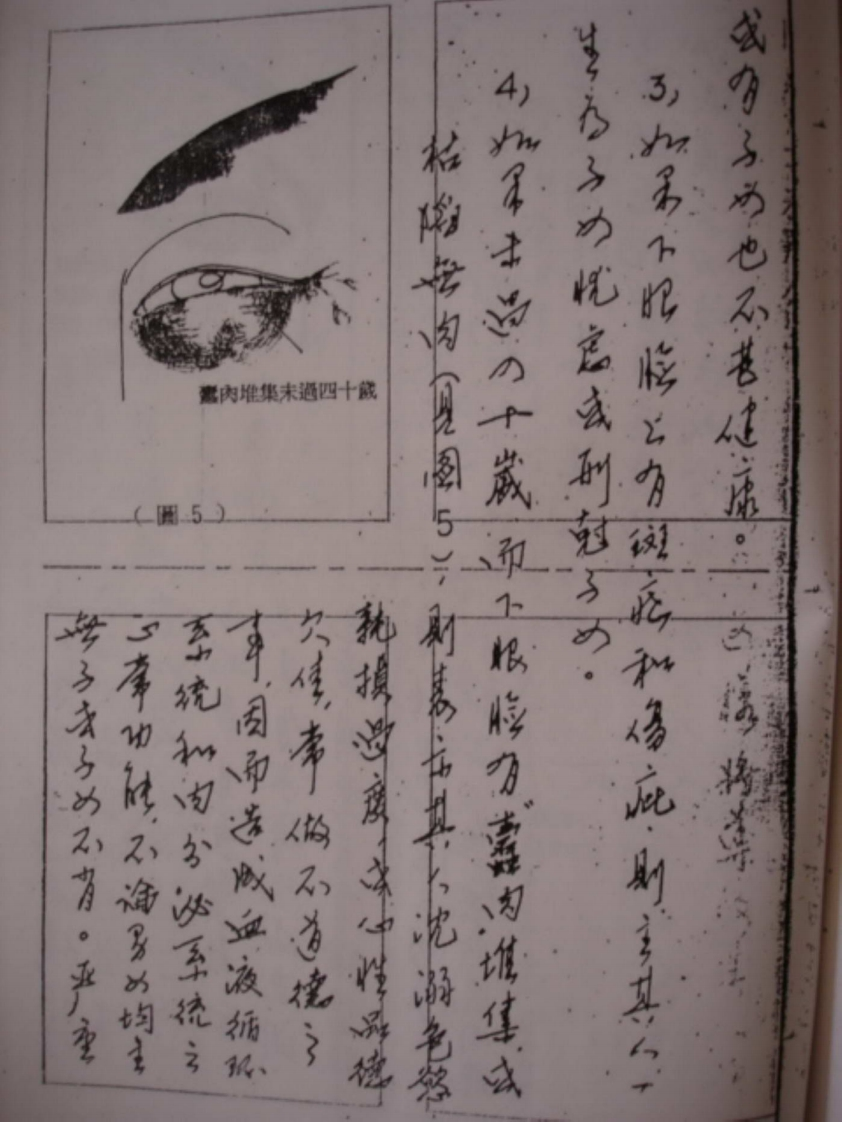 或有子女也不甚健康。
3，如果下眼臉上有斑痣和傷疵，則主其人一
生為子女恍惚或刑尅子女。
4，如果未過四十歲，而下眼臉有蠹肉堆集，或
枯陷無肉（見圖5），則表示其人沈溺色慾
耗損過度，或心性品德
欠佳，常做不道德之
事，因而造成血液循環
系統和內分泌系統之
正常功能，不論男女均主
無子或子女不肖。严重
蠶肉堆集未過四十歲
（圖 5）